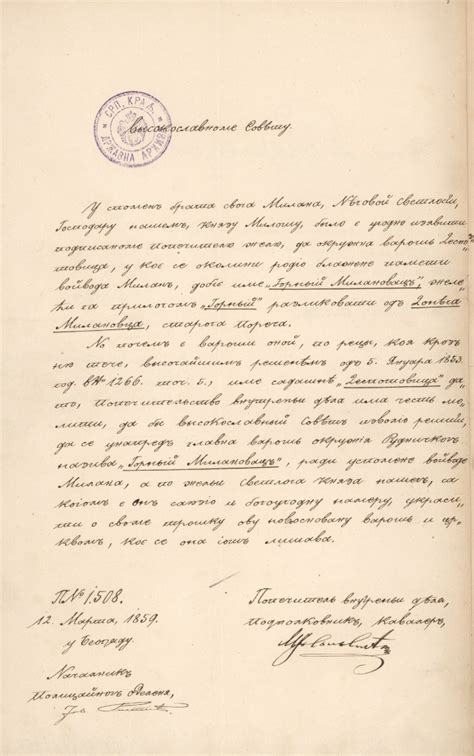 СРП. КРАЉ. ДРЖАВНА АРХИВА
Высокославноме Совѣту.
У споменъ брата свога Милана, Нѣговой Свѣтлости,
Господару нашемъ, Князу Милошу, было є угодно изявити
подписаномъ Попечителю желю, да окружна варошъ Деспо-
товица, у коєй се околини родіо блаженє памяти
войвода Миланъ, добіє име „Горный Милановацъ“, желе-
ћи га прилогомъ „Горный“ разликовати одъ Донѣга
Милановца, старога Пореча.
Но почемъ є вароши оной, по рецы, коя крозъ
ню тече, высочайшимъ решенѣмъ одъ 5. Януара 1853.
год. В№ 1266. точ. 5., име садашнѣ „Деспотовица“ да-
то, Попечительство внутреньи дѣла има честь мо-
лити, да бы высокославный Совѣтъ изволіо решити,
да се унапредъ главна варошъ окружія Рудничкогъ
назива „Горный Милановацъ“, ради успомене войводе
Милана, а по жельи Свѣтлога Князя нашегъ, са
коіомъ є онъ сапзіо и богоугодну намеру, украси-
ти о своме трошку ову новосновану варошъ и цр-
квомъ, коє се она іошъ лишава.
П№ 1508.
12. Марта, 1859.
у Београду.
Попечитель внутреньи дѣла,
Подполковникъ, Кавалеръ,
Началникъ
Полицайногъ Оделенія,